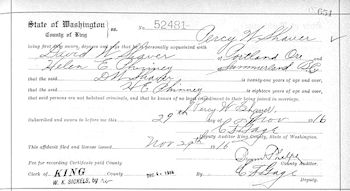 651
State of Washington
County of King
ss.
No. 52481
Percy W Shaver
being first duly sworn, deposes and says that he is personally acquainted with
David W Shaver of Portland Ore
Helen E Phinney of Summerland BC
that the said D W Shaver is twenty-one years of age and over,
that the said H E Phinney is eighteen years of age and over;
that said persons are not habitual criminals, and that he knows of no legal impediment to their being joined in marriage.
Percy W Shaver
Subscribed and sworn to before me this 29th day of Nov 1916
C F Gage
Deputy Auditor King County, State of Washington.
This affidavit filed and license issued Nov 29th 1916
For fee for recording Certificate paid County
County Auditor.
Clerk of KING County
W. K. SICKELS, by
C F Gage
Deputy.